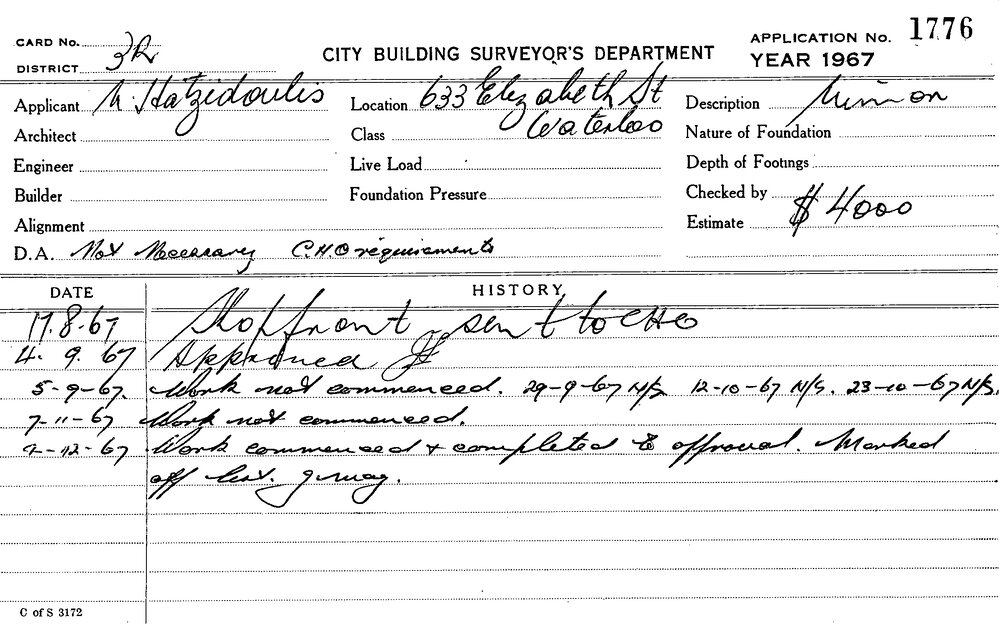 CARD No.
DISTRICT 3R
CITY BUILDING SURVEYOR'S DEPARTMENT
APPLICATION No. 1776
YEAR 1967
Applicant N. Hatzidoulis
Location 633 Elizabeth St
Waterloo
Description Minor
Architect
Class
Nature of Foundation
Engineer
Live Load
Depth of Footings
Builder
Foundation Pressure
Checked by
Alignment
Estimate $ 4000
D.A. Not Necessary C.H.O requirements
DATE
HISTORY
17.8.67 Shopfront sent to CHO
4. 9. 67 Approved
5-9-67. Work not commenced. 29-9-67 N/S 12-10-67 N/S. 23-10-67 N/S.
7-11-67 Work not commenced.
-12-67 Work commenced & completed to approval. Marked
off list.
C of S 3172